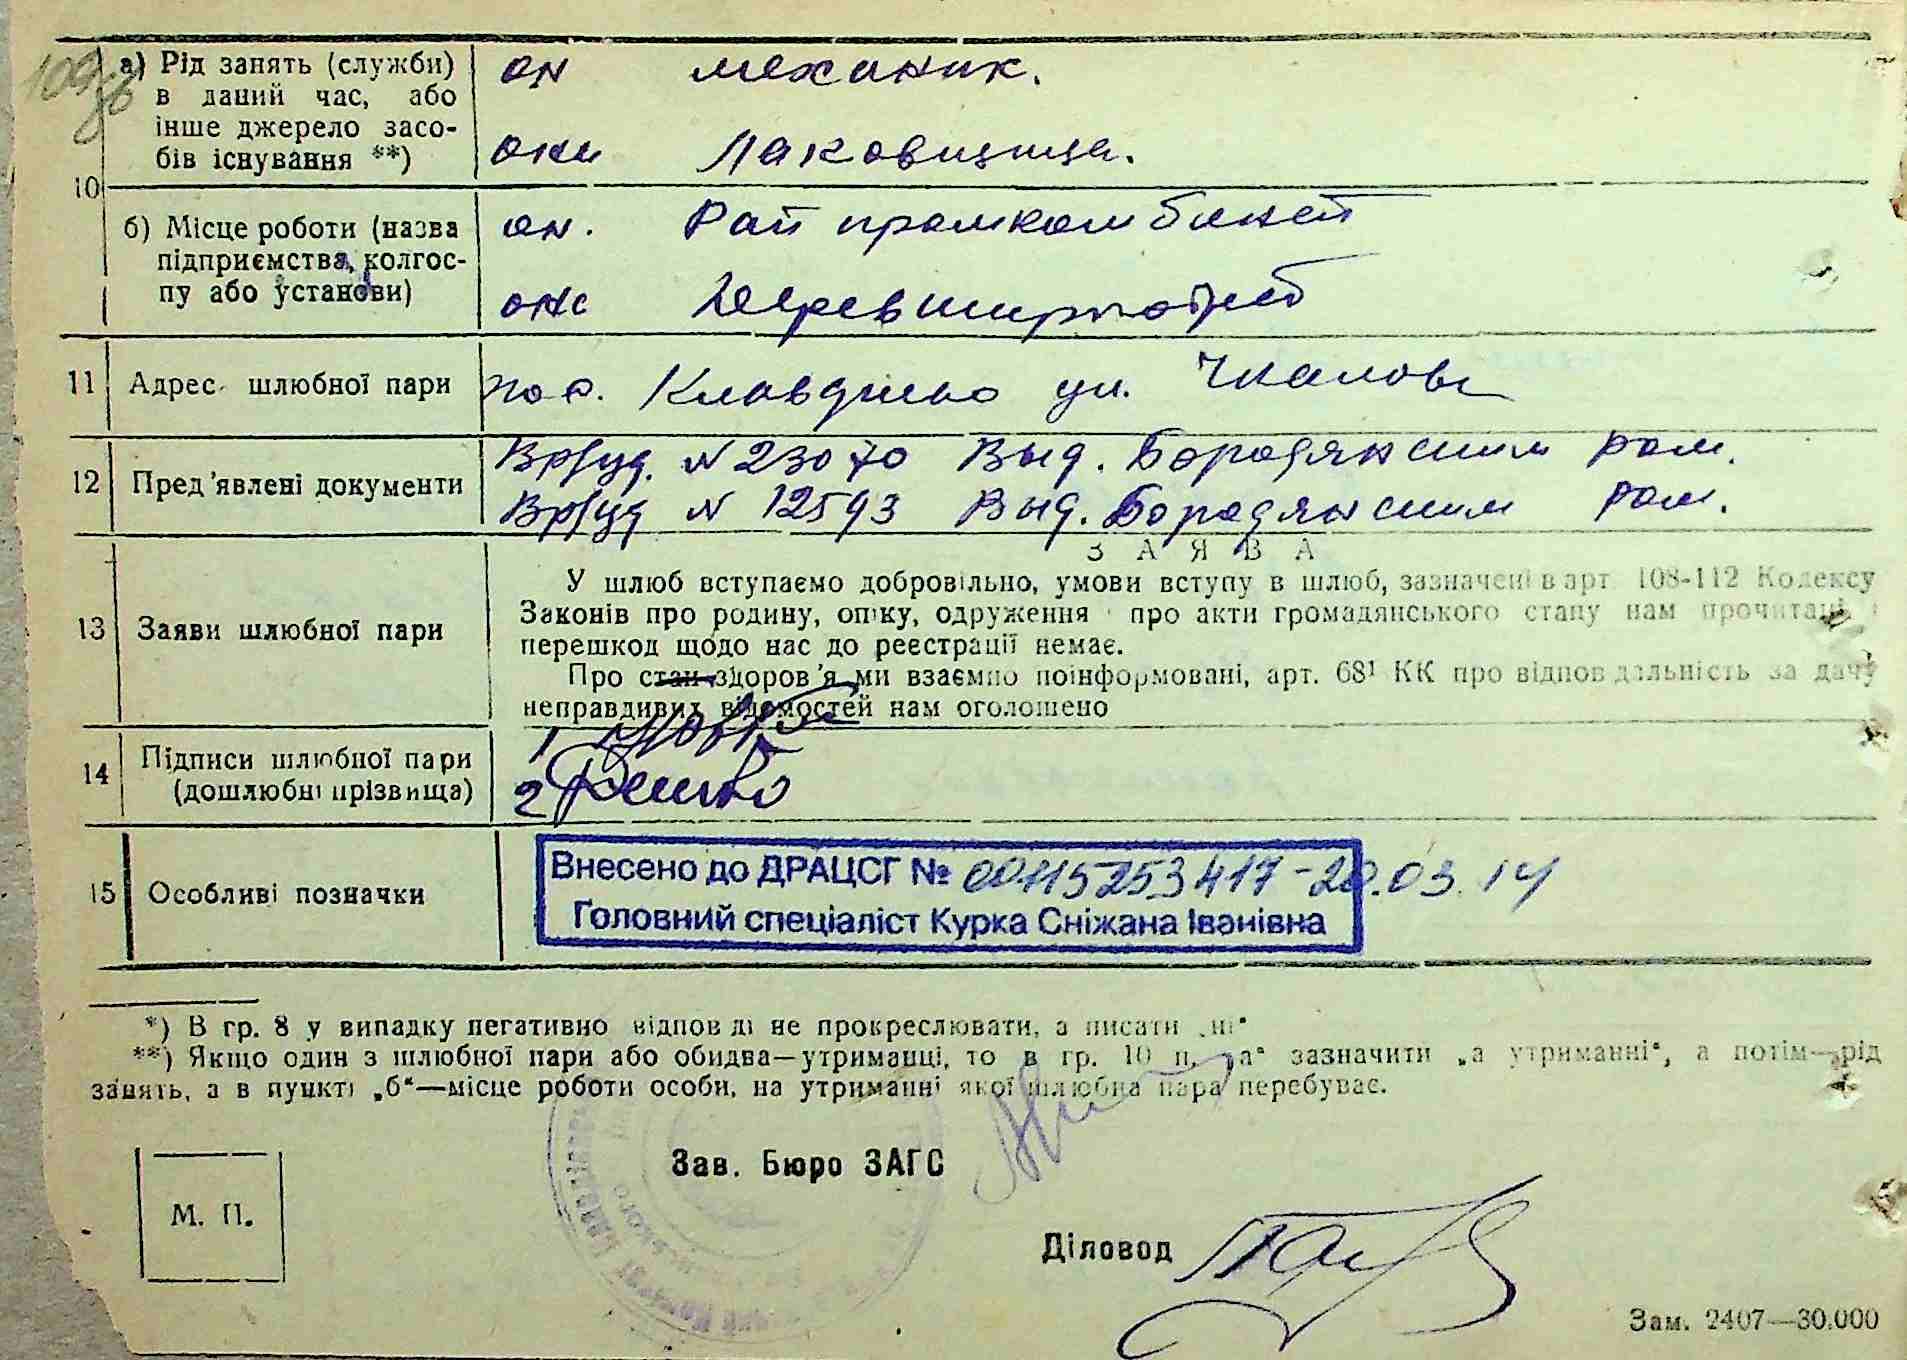 109 зв
а) Рід занять (служби) в даний час, або інше джерело засобів існування **)
он механик.
она Лаковщица.
10
б) Місце роботи (назва підприємства, колгоспу або установи)
он. Рай промкомбинат
она
11 Адрес шлюбної пари
пос. Клавдиево ул. Чкалова
12 Пред'явлені документи
Вр/уд. N 23070 Выд. Бородянским ром.
Вр/уд N 12593 Выд. Бородянским ром.
13 Заяви шлюбної пари
З А Я В А
У шлюб вступаємо добровільно, умови вступу в шлюб, зазначені в арт 108-112 Кодексу
Законів про родину, опіку, одруження і про акти громадянського стану нам прочитані і
перешкод щодо нас до реєстрації немає.
Про стан здоров'я ми взаємно поінформовані, арт. 68¹ КК про відповідальність за дачу
неправдивих відомостей нам оголошено
14 Підписи шлюбної пари (дошлюбні прізвища)
1
2
15 Особливі позначки
Внесено до ДРАЦСГ № 00115253417 - 20.03.14
Головний спеціаліст Курка Сніжана Іванівна
*) В гр. 8 у випадку негативної відповіді не прокреслювати, а писати „ні“
**) Якщо один з шлюбної пари або обидва—утриманці, то в гр. 10 п. „а“ зазначити „а утриманні“, а потім—рід
занять, а в пункті „б“—місце роботи особи, на утриманні якої шлюбна пара перебуває.
Зав. Бюро ЗАГС
М. П.
Діловод
Зам. 2407—30.000